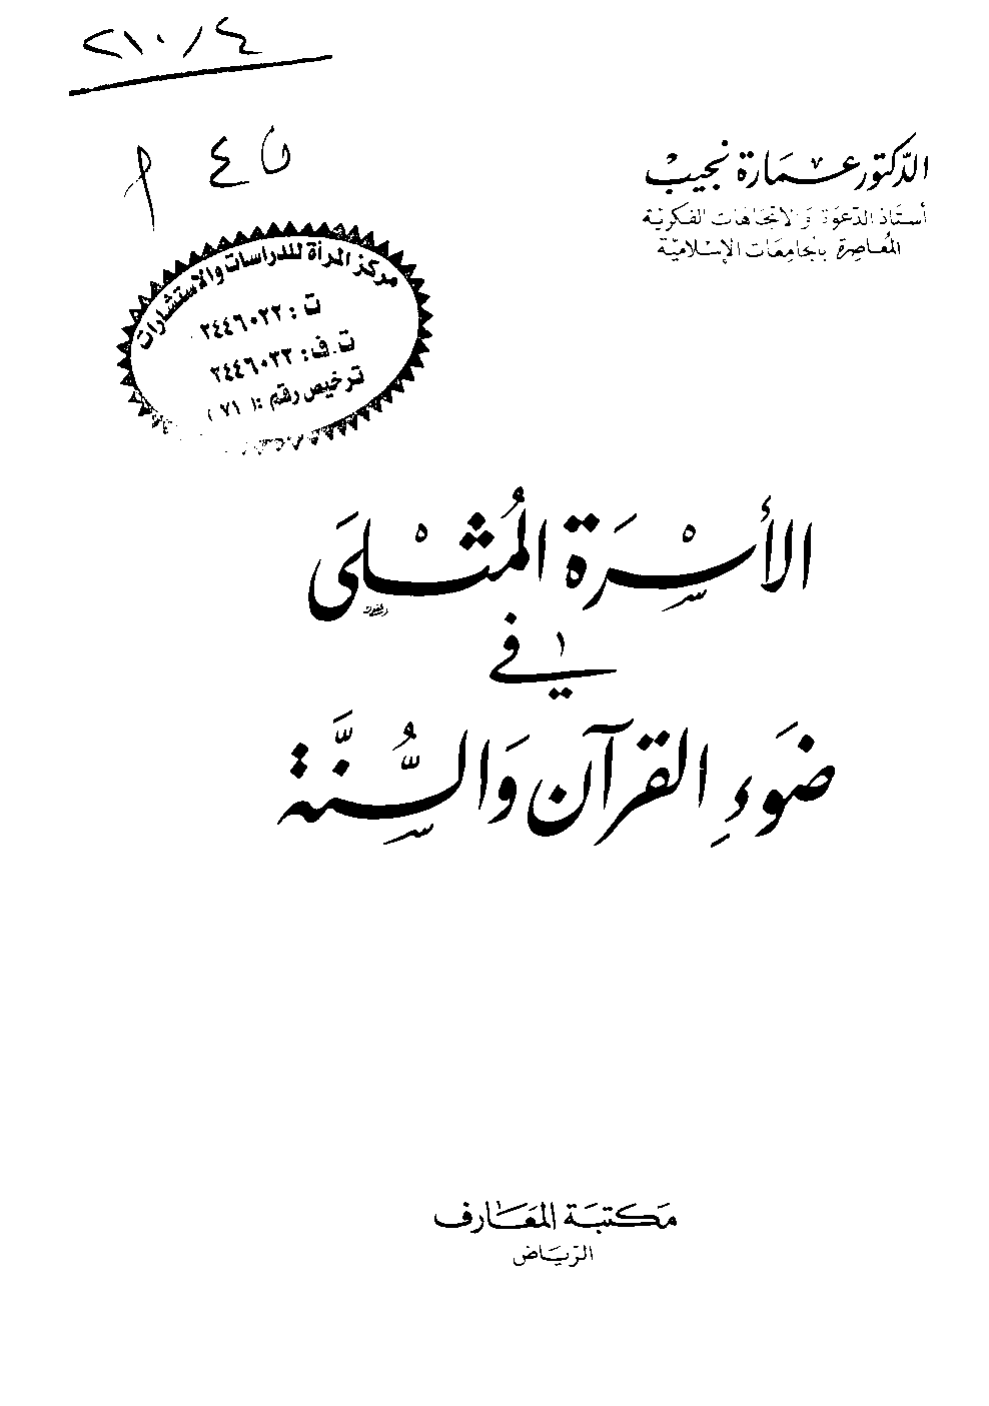 ٢١٠/٤
٤٥
م
الدّكتور عمَارة نجيبْ
أستاذ الدّعوَة وَالاتجاهَات الفكريّة
المُعَاصِرة بالجامِعَات الإسْلاميّة
مركز المرأة للدراسات والاستشارات
ت : ٢٤٤٦٠٢٢
ت.ف : ٢٤٤٦٠٢٣
ترخيص رقم : ( ٧١ )
الأسْرَة المُثْلَى
في
ضَوءِ القرآن وَالسُّنَّة
مَكتبَة المَعَارف
الرّيَاض